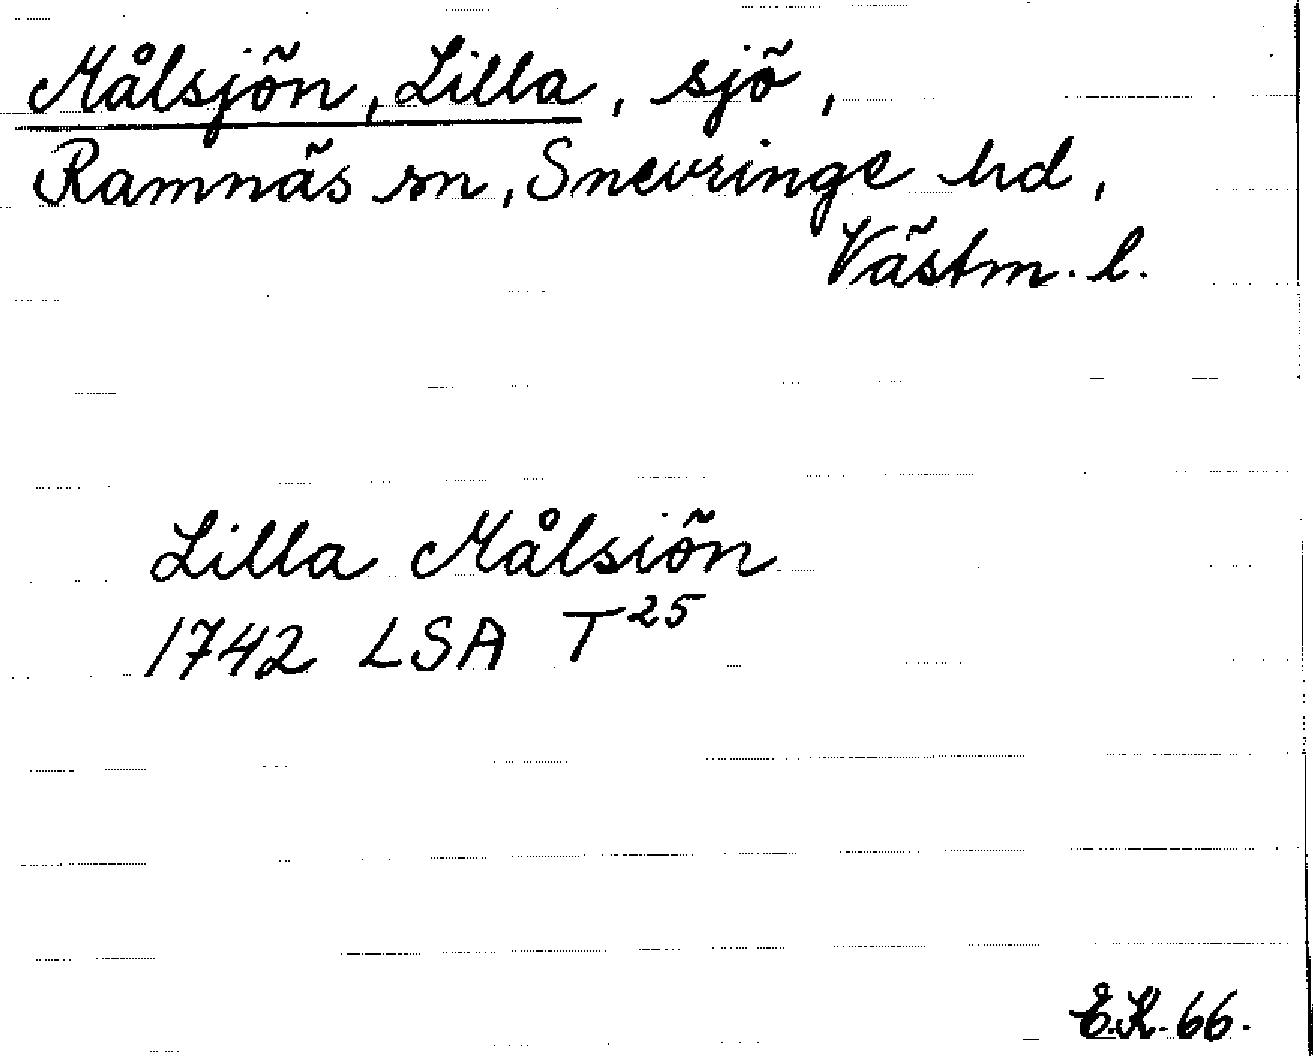 Målsjön, Lilla, sjö,
Ramnäs sn, Snevringe hd,
Västm. l.
Lilla Målsiön
1742 LSA T25
E.K. 66.